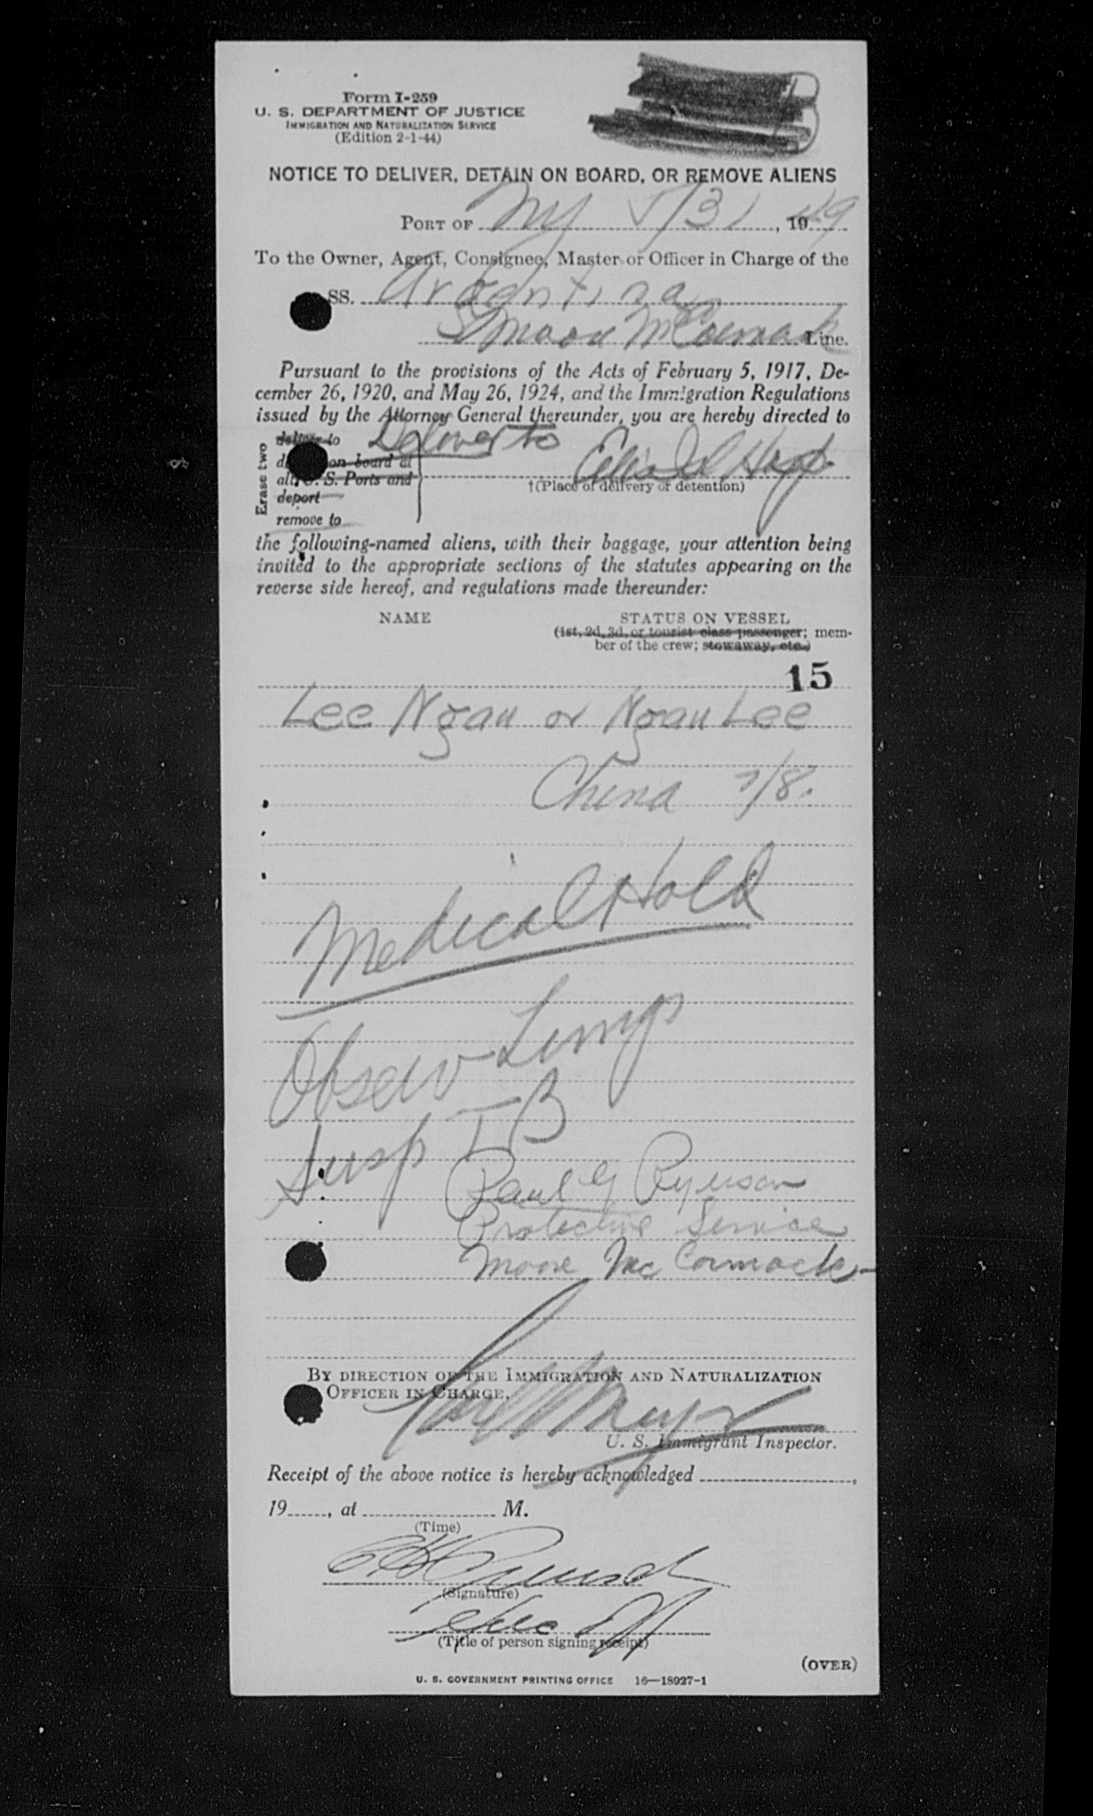 Form I-259
U. S. DEPARTMENT OF JUSTICE
IMMIGRATION AND NATURALIZATION SERVICE
(Edition 2-1-44)
NOTICE TO DELIVER, DETAIN ON BOARD, OR REMOVE ALIENS
PORT OF NY 5/31, 1949
To the Owner, Agent, Consignee, Master or Officer in Charge of the
SS. Argentina
McCormack Line.
Pursuant to the provisions of the Acts of February 5, 1917, De-
cember 26, 1920, and May 26, 1924, and the Immigration Regulations
issued by the Attorney General thereunder, you are hereby directed to
Erase two
deliver to
on board at
all U. S. Ports and
deport
remove to
Deliver to
†(Place of delivery or detention)
the following-named aliens, with their baggage, your attention being
invited to the appropriate sections of the statutes appearing on the
reverse side hereof, and regulations made thereunder:
NAME STATUS ON VESSEL
(1st, 2d, 3d, or tourist class passenger; mem-
ber of the crew; stowaway, etc.)
15
Lee Ngau or Ngau Lee
China 7/8.
Medical Hold
Observ Lungs
Susp TB
Paul G Ryerson
Protective Service
Moore McCormack
BY DIRECTION OF THE IMMIGRATION AND NATURALIZATION
OFFICER IN CHARGE,
U. S. Immigrant Inspector.
Receipt of the above notice is hereby acknowledged
19......, at M.
(Time)
(Signature)
(Title of person signing receipt)
(OVER)
U. S. GOVERNMENT PRINTING OFFICE 16—18927-1